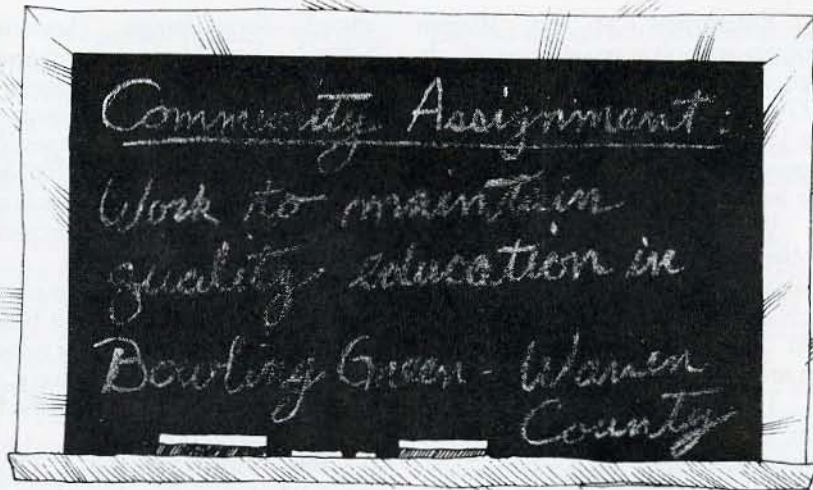 Community Assignment:
Work to maintain
quality education in
Bowling Green - Warren
County